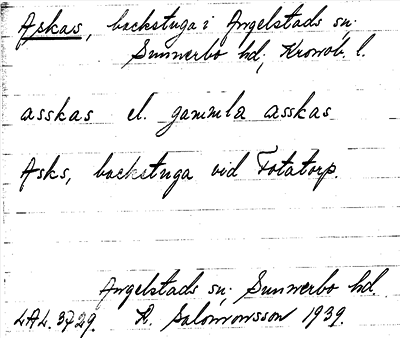 Askas, backstuga i Angelstads sn.
Sunnerbo hd, Kronob. l.
asskas el. gammla asskas
Asks, backstuga vid Totatorp.
Angelstads sn. Sunnerbo hd.
LAL. 3729. A. Salomonsson 1939.